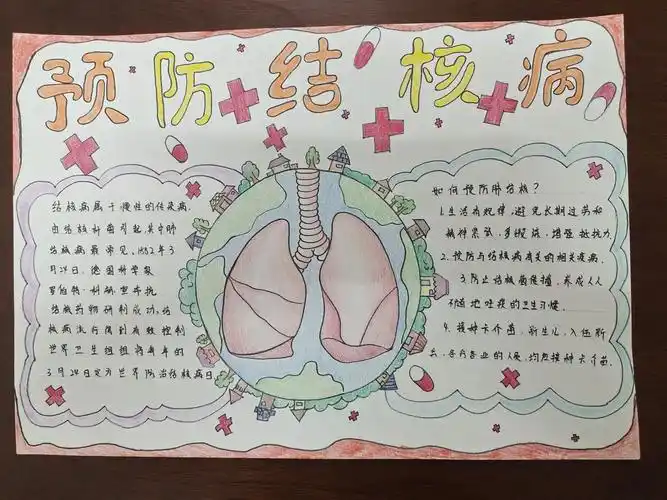 预防结核病
结核病属于慢性的传染病.
由结核杆菌引起其中肺
结核病最常见,1882年3
月24日,德国科学家
罗伯特·科研宣布抗
结核药物研制成功,结
核病流行得到有效控制
世界卫生组织将每年的
3月24日定为世界防治结核病日.
如何预防肺结核?
1.生活有规律,避免长期过劳和
精神紧张,多锻炼,增强抵抗力
2.预防与结核病有关的相关疾病.
3.防止结核菌传播,养成人人
不随地吐痰的卫生习惯.
4.接种卡介苗,新生儿,入伍新
兵,各行各业的人员,均应接种卡介苗.